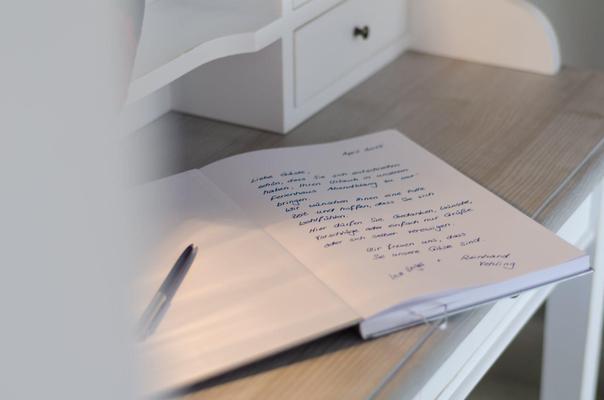 April
Liebe Gäste,
schön, dass Sie sich entschieden
haben, Ihren Urlaub in unserem
Ferienhaus Abendklang zu ver-
bringen.
Wir wünschen Ihnen eine tolle
Zeit und hoffen, dass Sie sich
wohlfühlen.
Hier dürfen Sie Gedanken, Wünsche,
Vorschläge oder einfach nur Grüße
oder sich selbst verewigen.
Wir freuen uns, dass
Sie unsere Gäste sind.
+ Reinhard